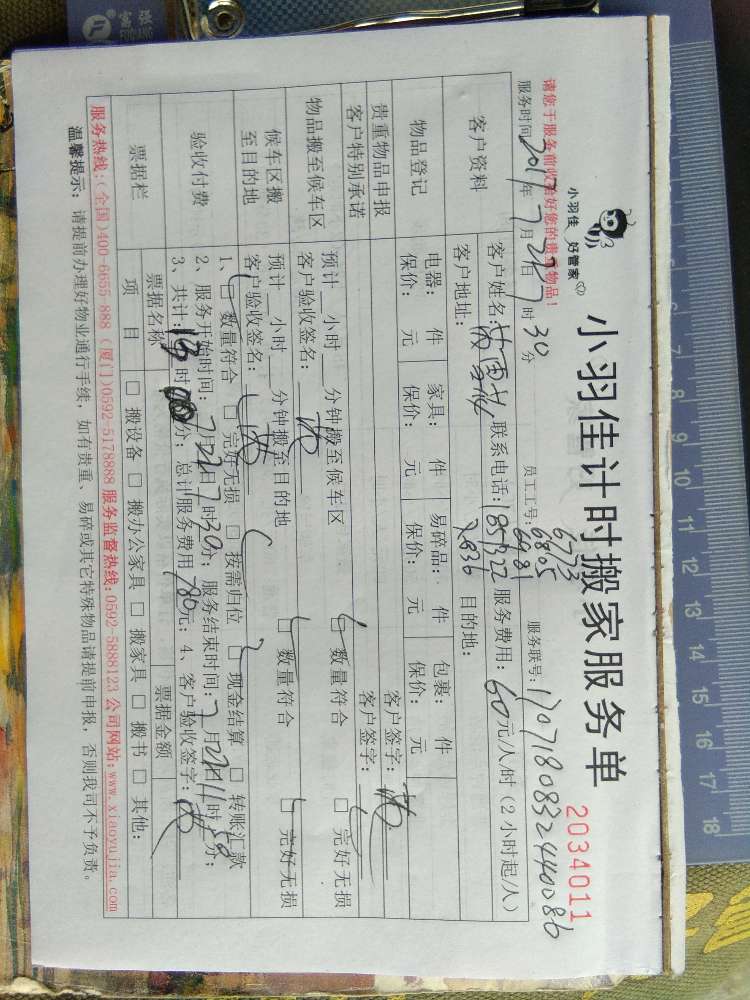 小羽佳 好管家
小羽佳计时搬家服务单
2034011
请您于服务前收拾好您的贵重物品!
员工工号: 6773 6805 6981
服务联号: 1707180832440086
服务时间 2017年7月22日7时30分
客户资料
客户姓名: 联系电话: 185 服务费用: 60元/人/时(2小时起/人)
客户地址: 目的地:
物品登记
电器: 件 家具: 件 易碎品: 件 包裹: 件
保价: 元 保价: 元 保价: 元 保价: 元
贵重物品申报 客户签字:
客户特别承诺 客户签字:
物品搬至候车区
预计 小时 分钟搬至候车区 □ 数量符合 □ 完好无损
客户验收签名:
候车区搬至目的地
预计 小时 分钟搬至目的地 □ 数量符合 □ 完好无损
客户验收签名:
验收付费
1、□ 数量符合 □ 完好无损 □ 按需归位 □ 现金结算 □ 转账汇款
2、服务开始时间: 7月22日7时30分; 服务结束时间: 7月22日11时50分;
3、共计: 13时 分; 总计服务费用 780元; 4、客户验收签字:
票据栏
票据名称 票据金额
项 目 □ 搬设备 □ 搬办公家具 □ 搬家具 □ 搬书 □ 其他:
服务热线:(全国)400-6655-888 (厦门)0592-5178888 服务监督热线:0592-5888123 公司网站:www.xiaoyujia.com
温馨提示: 请提前办理好物业通行手续, 如有贵重、易碎或其它特殊物品请提前申报, 否则我司不予负责。
7 8 9 10 11 12 13 14 15 16 17 18